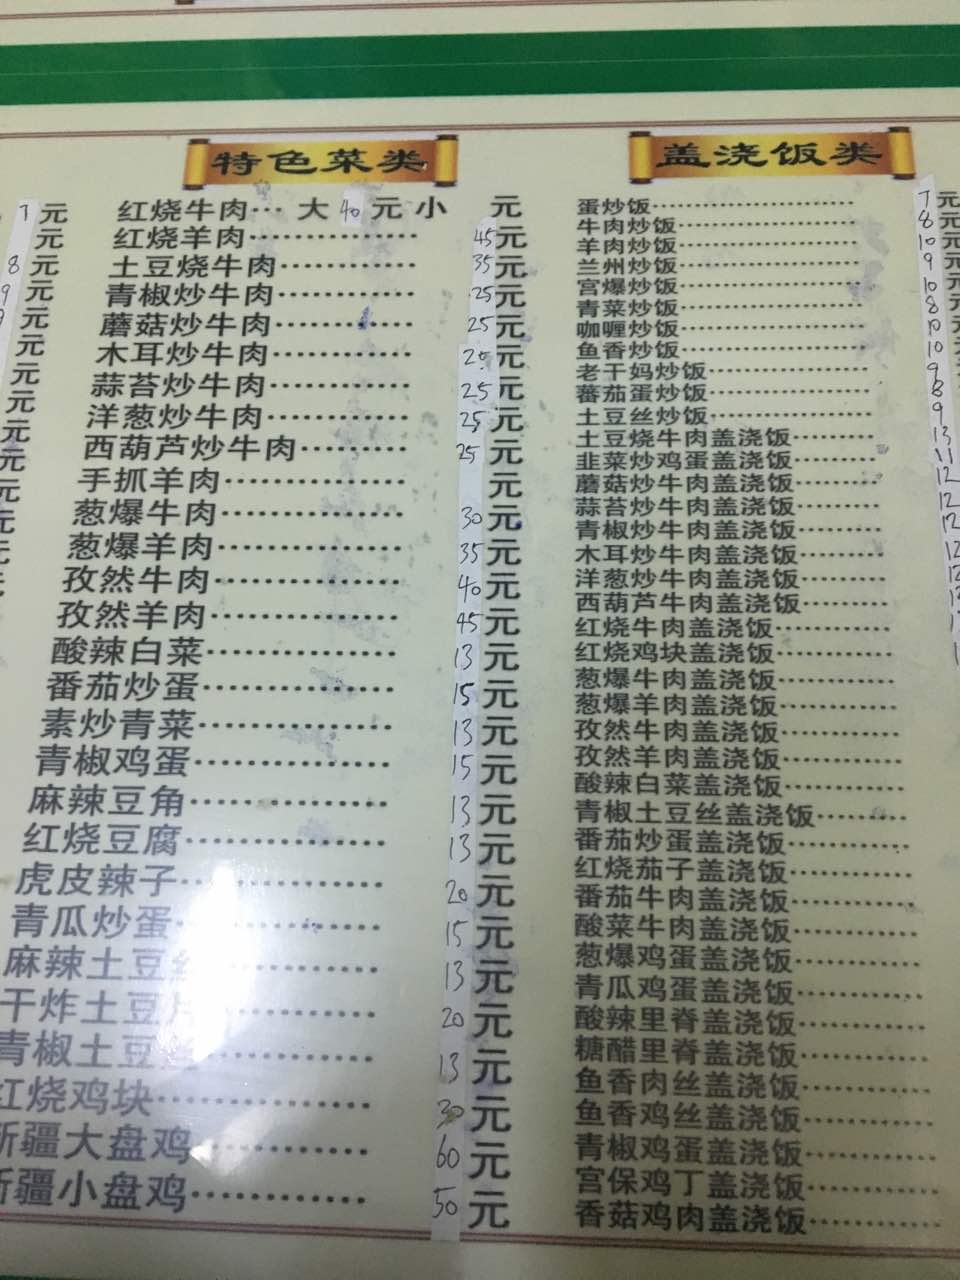 特色菜类
红烧牛肉… 大 40 元 小 元
红烧羊肉…………… 45元
土豆烧牛肉………… 35元
青椒炒牛肉………… 25元
蘑菇炒牛肉………… 25元
木耳炒牛肉………… 25元
蒜苔炒牛肉………… 25元
洋葱炒牛肉………… 25元
西葫芦炒牛肉……… 25元
手抓羊肉…………… 元
葱爆牛肉…………… 30元
葱爆羊肉…………… 35元
孜然牛肉…………… 40元
孜然羊肉…………… 45元
酸辣白菜…………… 13元
番茄炒蛋…………… 15元
素炒青菜…………… 13元
青椒鸡蛋…………… 15元
麻辣豆角…………… 13元
红烧豆腐…………… 13元
虎皮辣子…………… 20元
青瓜炒蛋…………… 15元
麻辣土豆丝………… 13元
干炸土豆片………… 20元
青椒土豆丝………… 13元
红烧鸡块…………… 30元
新疆大盘鸡………… 60元
新疆小盘鸡………… 50元
盖浇饭类
蛋炒饭…………………… 7元
牛肉炒饭………………… 8元
羊肉炒饭………………… 10元
兰州炒饭………………… 9元
宫爆炒饭………………… 10
青菜炒饭………………… 8
咖喱炒饭………………… 10
鱼香炒饭………………… 10
老干妈炒饭……………… 9
蕃茄蛋炒饭……………… 8
土豆丝炒饭……………… 9
土豆烧牛肉盖浇饭……… 13
韭菜炒鸡蛋盖浇饭……… 11
蘑菇炒牛肉盖浇饭……… 12
蒜苔炒牛肉盖浇饭……… 12
青椒炒牛肉盖浇饭……… 12
木耳炒牛肉盖浇饭………
洋葱炒牛肉盖浇饭………
西葫芦牛肉盖浇饭………
红烧牛肉盖浇饭…………
红烧鸡块盖浇饭…………
葱爆牛肉盖浇饭…………
葱爆羊肉盖浇饭…………
孜然牛肉盖浇饭…………
孜然羊肉盖浇饭…………
酸辣白菜盖浇饭…………
青椒土豆丝盖浇饭………
番茄炒蛋盖浇饭…………
红烧茄子盖浇饭…………
番茄牛肉盖浇饭…………
酸菜牛肉盖浇饭…………
葱爆鸡蛋盖浇饭…………
青瓜鸡蛋盖浇饭…………
酸辣里脊盖浇饭…………
糖醋里脊盖浇饭…………
鱼香肉丝盖浇饭…………
鱼香鸡丝盖浇饭…………
青椒鸡蛋盖浇饭…………
宫保鸡丁盖浇饭…………
香菇鸡肉盖浇饭…………